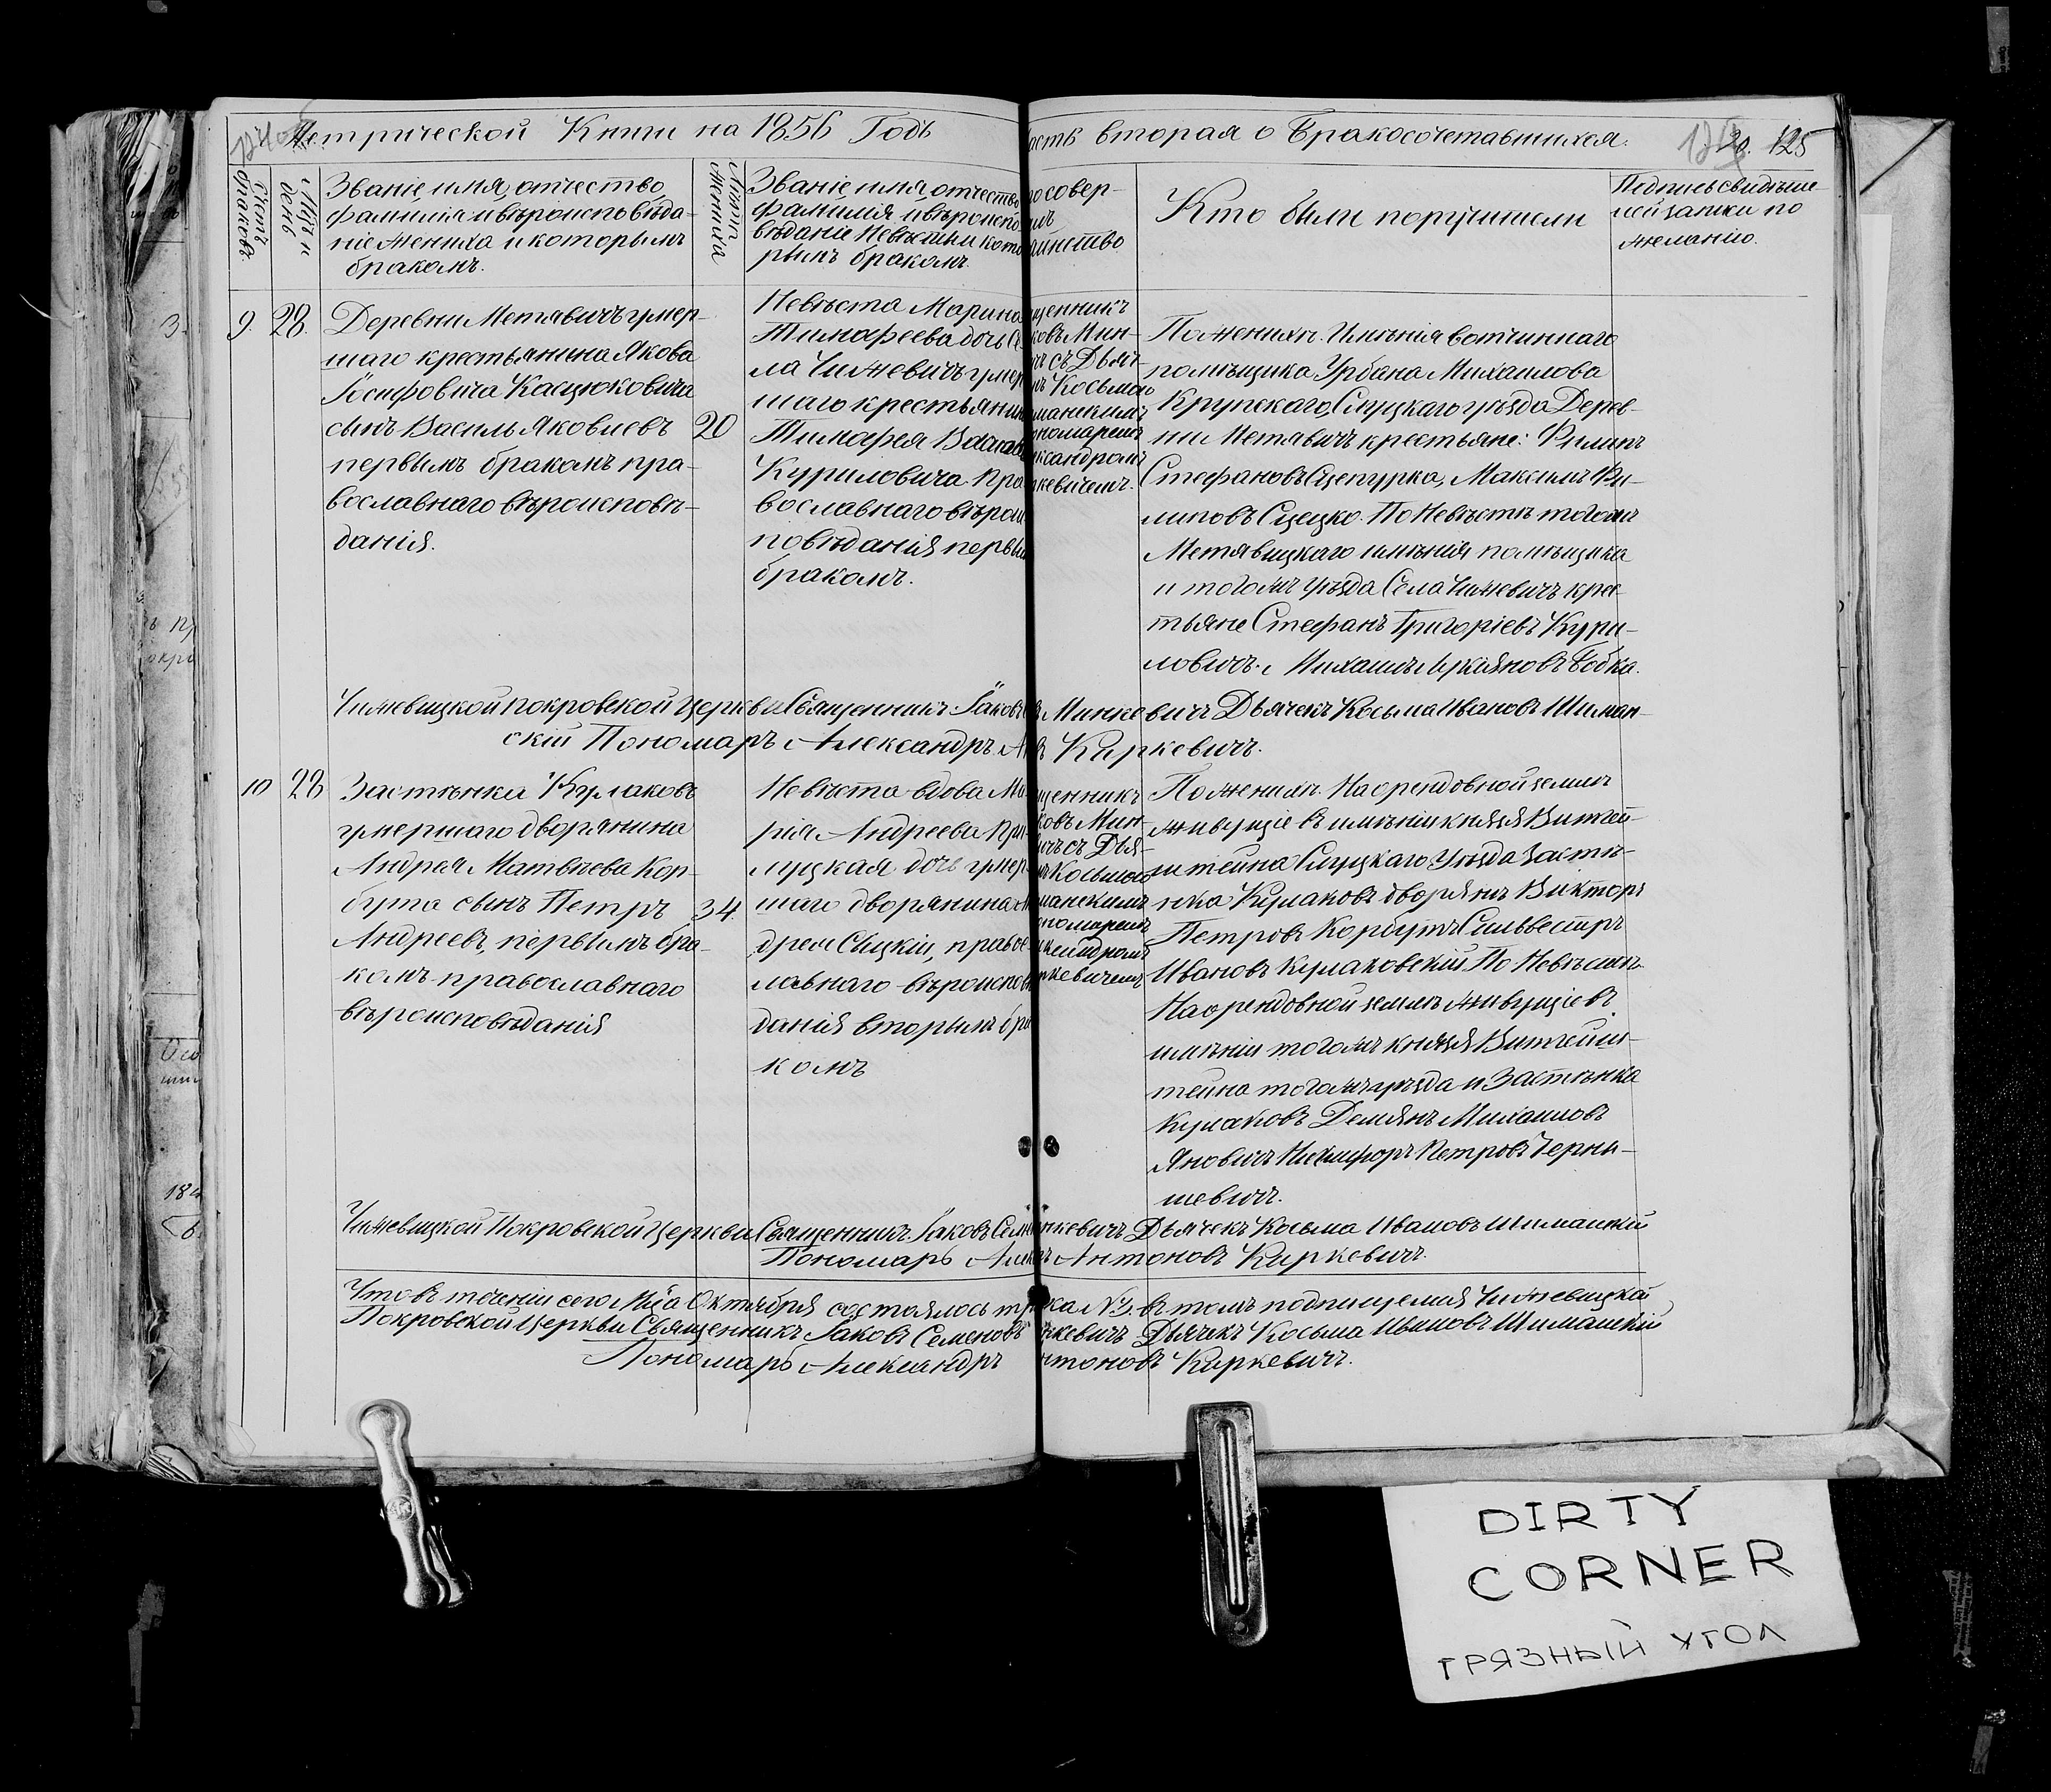 Метрической Книги на 1856 Годъ
асть вторая о Бракосочетавшихся.
125
Счетъ браковъ.
Мцъ и день
Званіе, имя, отчество,
фамилія и вѣроисповѣда-
ніе жениха и которымъ
бракомъ.
Лѣта жениха
Званіе, имя, отчество
фамилія и вѣроиспо
вѣданіе Невѣсты и кото
рымъ бракомъ.
о совер-
лъ
аинство
Кто были поручители
Подпись свидѣте-
лей записи по
желанію.
9. 28.
Деревни Метявичъ умер-
шаго крестьянина Якова
Іосифовича Касцюковича
сынъ Василь Яковлевъ
первымъ бракомъ пра-
вославнаго вѣроисповѣ-
данія.
20
Невѣста Марина
Тимафеева дочь Се-
ла Чижевичъ умер
шаго крестьянин
Тимафея
Куриловича пра
вославнаго вѣрои
повѣданія первы
бракомъ.
щенникъ
ковъ Мин-
чъ съ Дьяч-
мъ Косьмою
манскимъ
ономаремъ
ександромъ
ркевичемъ.
По женихѣ. Имѣнія вотчиннаго
помѣщика Урбана Михаилова
Крупскаго, Слуцкаго уѣзда Дерев-
ни Метявичъ крестьяне: Филипъ
Стефановъ Сцепурка, Максимъ Фи-
липовъ Сцецко. По Невѣстѣ тогожъ
Метявицкаго имѣнія помѣщика
и тогожъ уѣзда Села Чижевичъ крес
тьяне Стефанъ Григоріевъ Кури-
ловичъ. Михаилъ Лукіяновъ Бобка.
Чижевицкой Покровской Церкви Священникъ Іаковъ Минкевичъ Дьячекъ Косьма Ивановъ Шиман-
скій Пономаръ Александръ А въ Киркевичъ.
10 28
Застѣнка Кулаковъ
умершаго дворянина
Андрея Матвѣева Кор-
бута сынъ Петръ
Андреевъ, первымъ бра-
комъ православнаго
вѣроисповѣданія
34.
Невѣста вдова Ма-
рія Андреева При-
луцкая дочь умер
шаго дворянина Ан
дрея Сыцкій, правос-
лавнаго вѣроисповѣ
данія вторымъ бра
комъ
щенникъ
ковъ Мин-
ичъ съ Дья-
мъ Косьмою
манскимъ
ономаремъ
лександромъ
ркевичемъ
По женихѣ. На орендовной землѣ
живущіе въ имѣніи князя Витген-
штейна Слуцкаго Уѣзда Застѣ-
нка Кулаковъ дворянъ Викторъ
Петровъ Корбутъ Сильвестръ
Ивановъ Кулаковскій. По Невѣстѣ
На орендовной землѣ живущіе въ
имѣніи тогожъ князя Витгенш-
тейна тогожъ уѣзда и Застѣнка
Кулаковъ Демянъ Михаиловъ
Яновичъ Никифоръ Петровъ Черны-
шевичъ.
Чижевицкой Покровской Церкви Священникъ Іаковъ Сем нкевичъ Дьячекъ Косьма Ивановъ Шиманскій
Пономарь Алек ъ Антоновъ Киркевичъ.
Что въ теченіи сего Мца Октября состоялось три ка №3. въ томъ подписуемся Чижевицкой
Покровской Церкви Священникъ Іаковъ Семеновъ нкевичъ Дьячекъ Косьма Ивановъ Шиманскій
Пономарь Александръ нтоновъ Киркевичъ.
DIRTY
CORNER
ГРЯЗНЫЙ УГОЛ